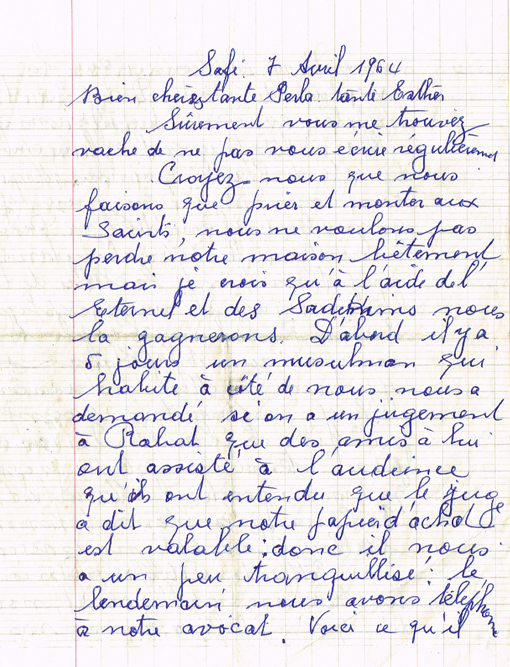 Safi 7 Avril 1964
Bien chères tante Perla tante Esther
Sûrement vous me trouvez
vache de ne pas vous écrire régulièrement
Croyez nous que nous
faisons que prier et monter aux
Saints, nous ne voulons pas
perdre notre maison bêtement
mais je crois qu'à l'aide del'
Eternel et des Saddikims nous
la gagnerons. D'abord il y a
5 jours un musulman qui
habite à côté de nous nous a
demandé si on a un jugement
à Rabat que des amis à lui
ont assisté à l'audience
qu'ils ont entendu que le juge
a dit que notre papier d'achat
est valable; donc il nous
a un peu tranquillisé: le
lendemain nous avons téléphoné
à notre avocat. Voici ce qu'il